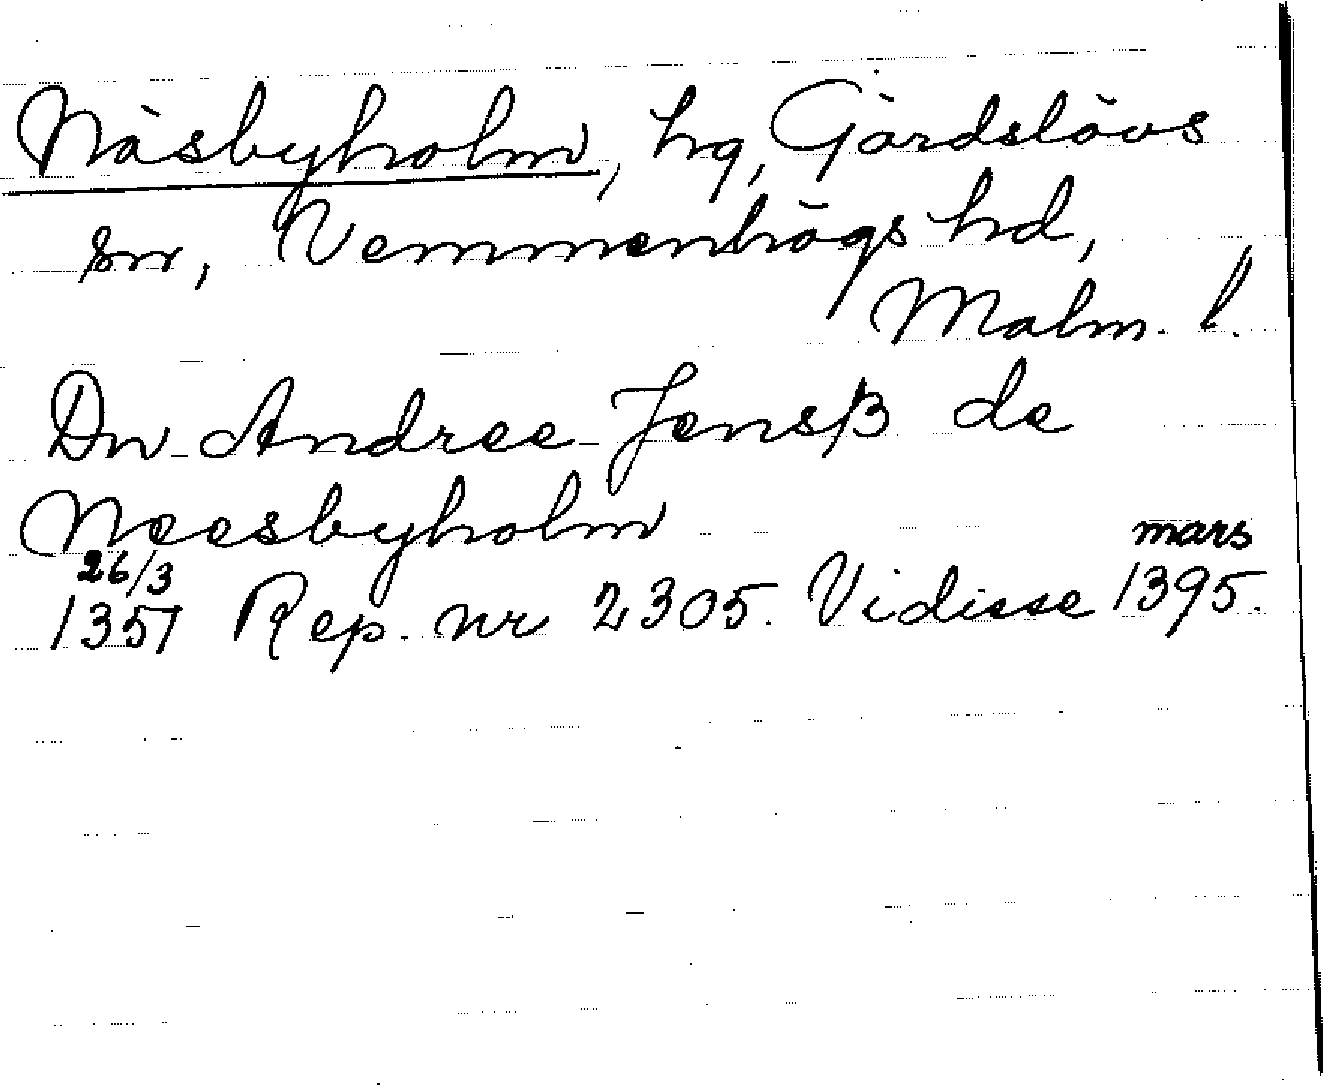 Näsbyholm, hg, Gärdslövs
sn, Vemmenhögs hd,
Malm. l.
Dn Andree Jensß de
Neesbyholm
26/3 mars
1357 Rep. nr 2305. Vidisse 1395.